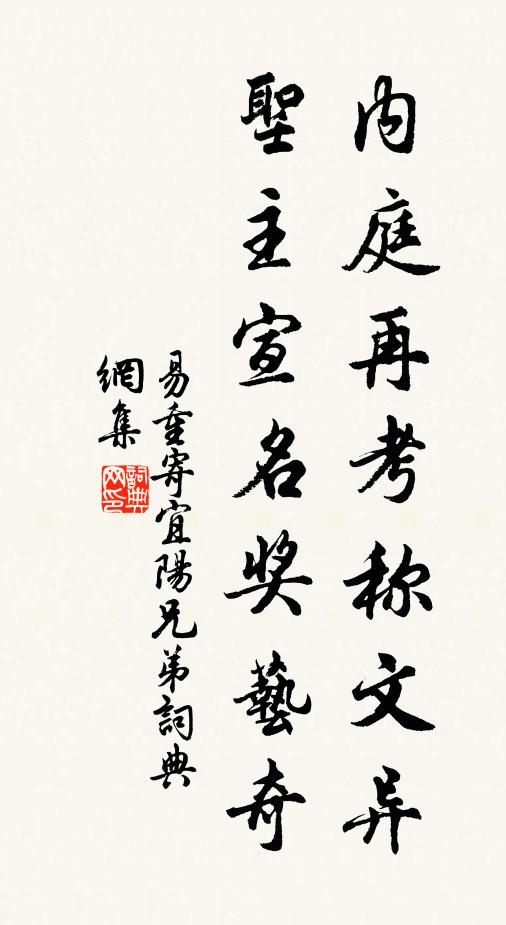 内庭再考称文异
聖主宣名奖藝奇
易重寄宜陽兄弟詞典
網集
詞典网印